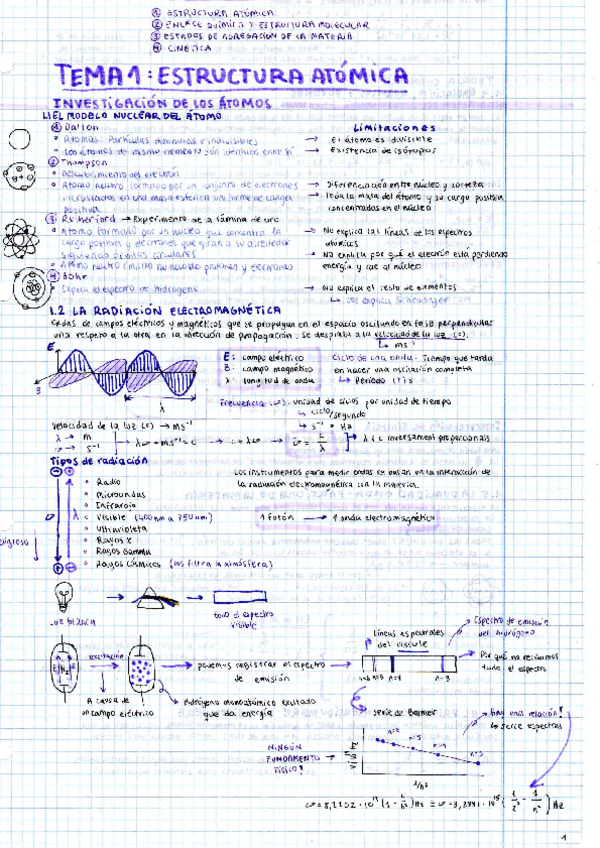 ① ESTRUCTURA ATÓMICA
② ENLACE QUÍMICO Y ESTRUCTURA MOLECULAR
③ ESTADOS DE AGREGACIÓN DE LA MATERIA
④ CINÉTICA
TEMA 1: ESTRUCTURA ATÓMICA
INVESTIGACIÓN DE LOS ÁTOMOS
1.1 EL MODELO NUCLEAR DEL ÁTOMO
① Dalton
Limitaciones
Átomos: Partículas diminutas e indivisibles → El átomo es divisible
Los átomos del mismo elemento son idénticos entre sí → Existencia de isótopos
② Thompson
Descubrimiento del electrón
Átomo neutro formado por un conjunto de electrones → Diferenciación entre núcleo y corteza
incrustados en una masa esférica uniforme de carga → Toda la masa del átomo y su carga positiva
positiva concentradas en el núcleo
③ Rutherford → Experimento de la lámina de oro
Átomo formado por un núcleo que concentra la → No explica las líneas de los espectros
carga positiva y electrones que giran a su alrededor atómicos
siguiendo órbitas circulares → No explica por qué el electrón está perdiendo
Átomo neutro (mismo número de protones y electrones energía y cae al núcleo
④ Bohr
Explica el espectro de hidrógeno → No explica el resto de elementos
↳ Los explica Schrödinger
1.2 LA RADIACIÓN ELECTROMAGNÉTICA
Ondas de campos eléctricos y magnéticos que se propagan en el espacio oscilando en fase perpendicular
una respecto a la otra en la dirección de propagación; se desplaza a la velocidad de la luz (c).
↳ ms⁻¹
E
B
λ
E: campo eléctrico
B: campo magnético
λ: longitud de onda
Ciclo de una onda: Tiempo que tarda
en hacer una oscilación completa
↳ Período (T) s
Frecuencia (ν): unidad de ciclos por unidad de tiempo
↳ ciclo/segundo
↳ s⁻¹ = Hz
Velocidad de la luz (c) → ms⁻¹
λ → m
ν → s⁻¹
λν = ms⁻¹ = c → c = λν → ν = c/λ → λ i ν inversament proporcionals
Tipos de radiación
Los instrumentos para medir ondas se basan en la interacción de
la radiación electromagnética con la materia.
Radio
Microondas
Infrarojo
ν λ Visible (400nm a 750nm)
1 fotón → 1 onda electromagnética
Ultravioleta
Rayos X
Rayos Gamma
Rayos Cósmicos (los filtra la atmósfera)
todo el espectro
visible
Espectro de emisión
del hidrógeno
Líneas espectrales
del visible
Por qué no recibimos
todo el espectro
Excitación
podemos registrar el espectro
de emisión
n=4 n=3
A causa de
un campo eléctrico
Hidrógeno monoatómico excitado
que da energía
serie de Balmer
Hay una relación!
↳ serie espectral
n=5 n=4 n=3
NINGÚN
FUNDAMENTO
FÍSICO!
1/n²
1